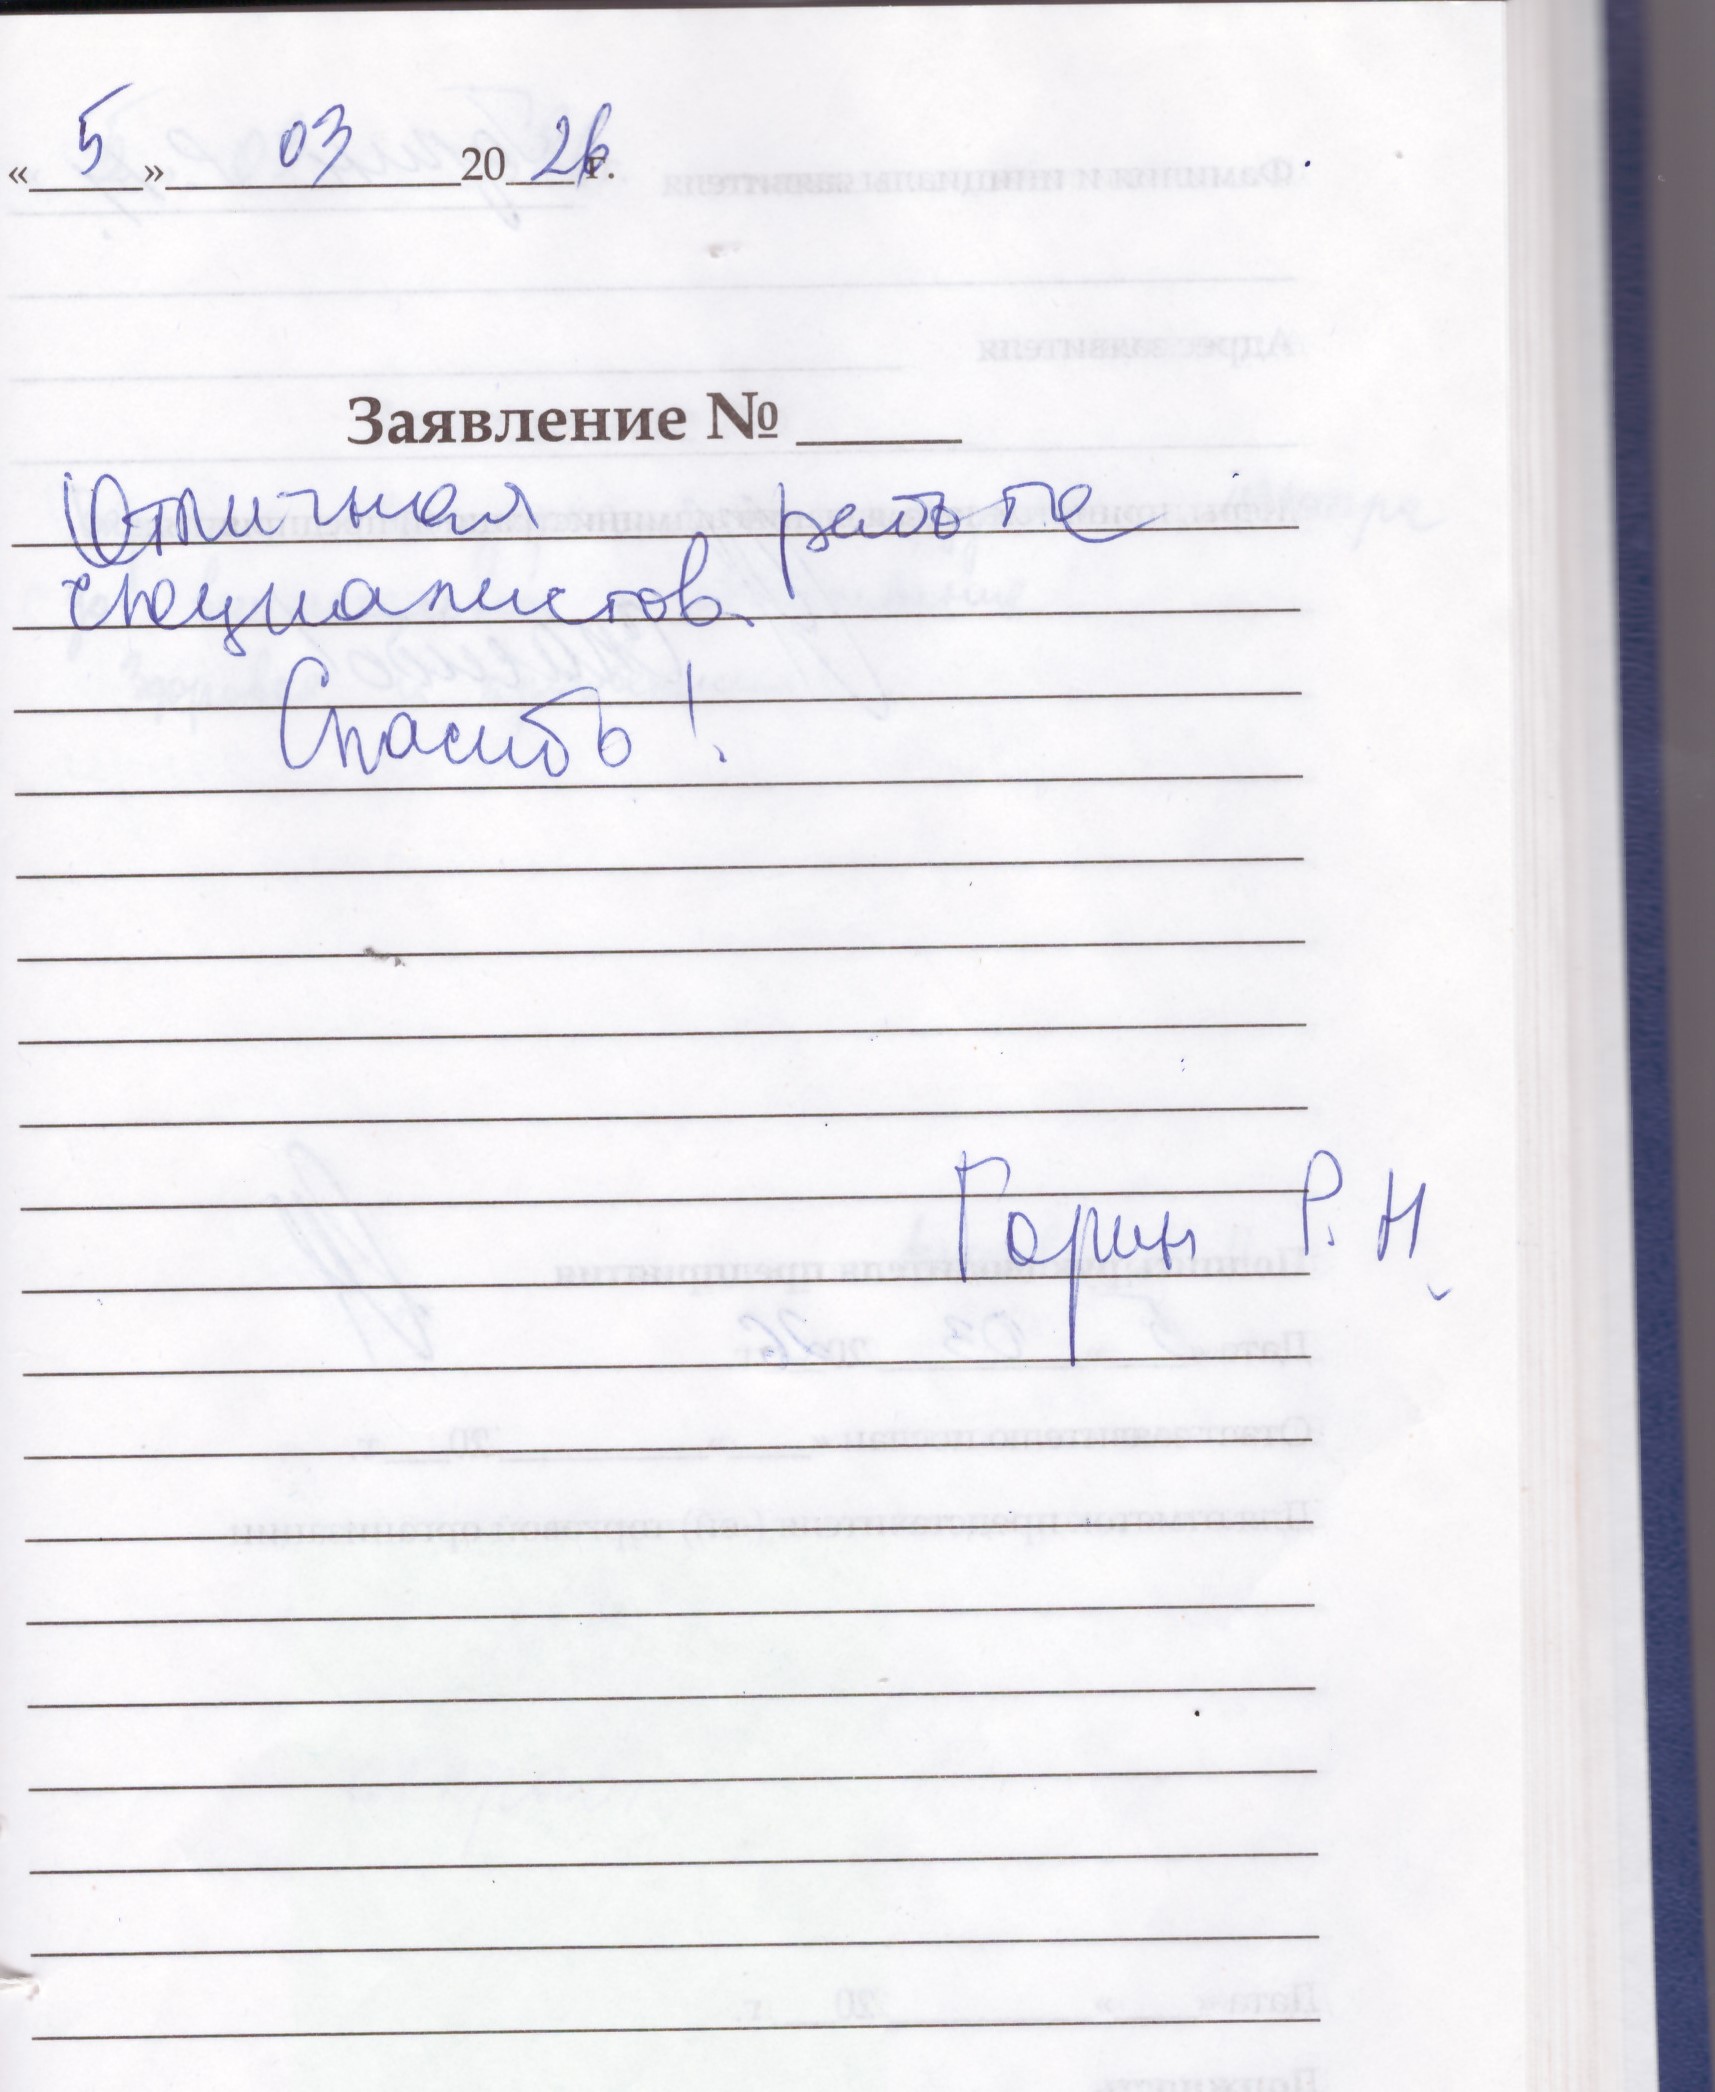 «5» 03 2026 г.
Заявление №
Отличная работа
специалистов.
Спасибо!
Горин Р. Н.